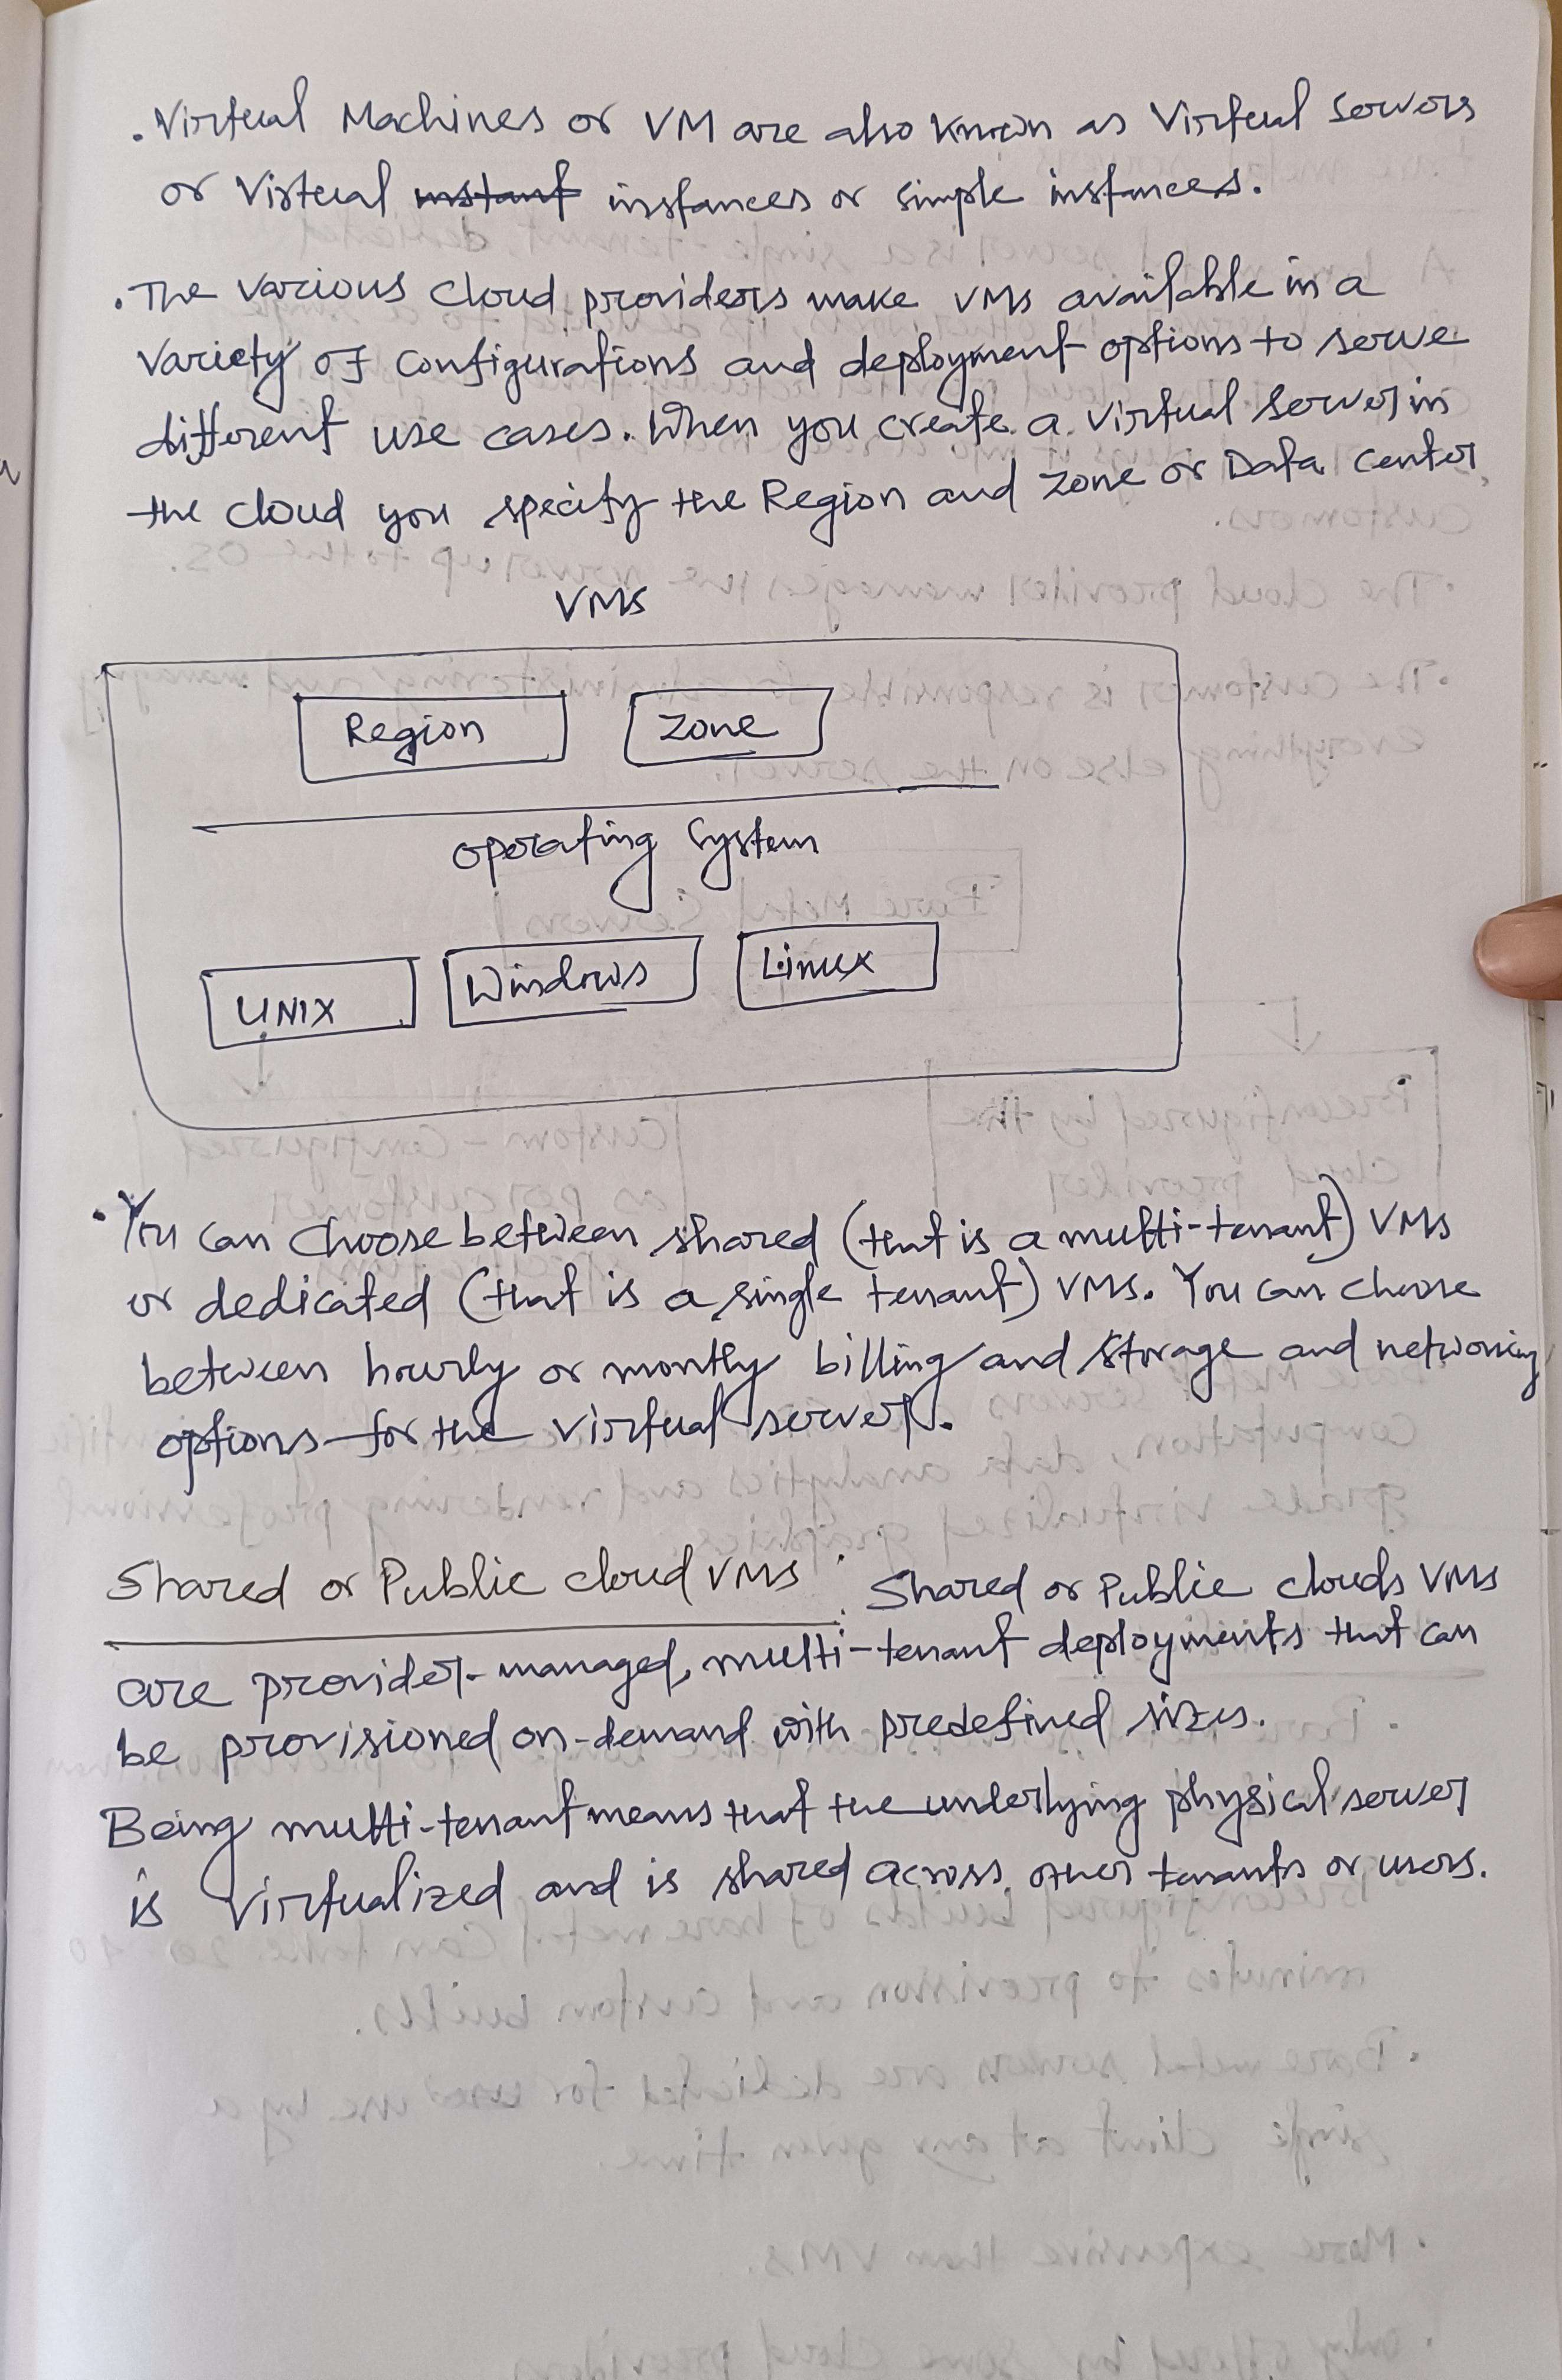 . Virtual Machines or VM are also known as Virtual Servers
or Virtual instances or simple instances.
. The various cloud providers make VMs available in a
Variety of Configurations and deployment options to serve
different use cases. When you create a virtual server in
the cloud you specify the Region and zone or Data center,
VMS
Region Zone
Operating System
UNIX Windows Linux
. You can choose between shared (that is a multi-tenant) VMs
or dedicated (that is a single tenant) VMs. You can choose
between hourly or montly billing and storage and networking
options for the virtual server.
Shared or Public cloud VMs : Shared or Public clouds VMs
are provider-managed, multi-tenant deployments that can
be provisioned on-demand with predefined sizes.
Being multi-tenant means that the underlying physical server
is virtualized and is shared across other tenants or users.